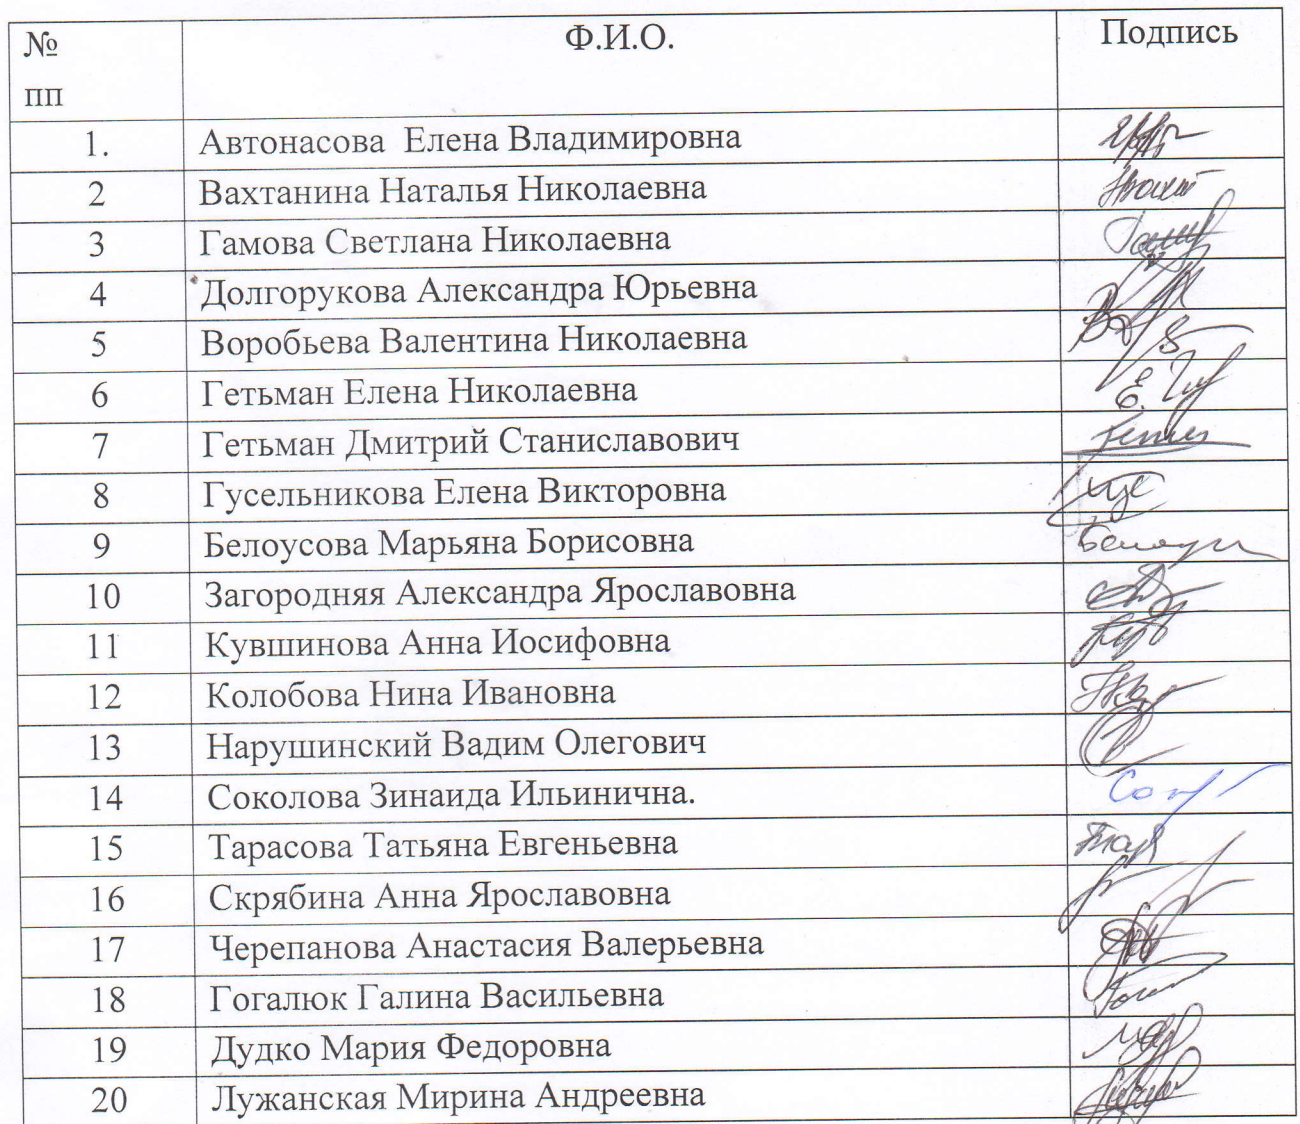 № пп Ф.И.О. Подпись
1. Автонасова Елена Владимировна
2 Вахтанина Наталья Николаевна
3 Гамова Светлана Николаевна
4 Долгорукова Александра Юрьевна
5 Воробьева Валентина Николаевна
6 Гетьман Елена Николаевна
7 Гетьман Дмитрий Станиславович
8 Гусельникова Елена Викторовна
9 Белоусова Марьяна Борисовна
10 Загородняя Александра Ярославовна
11 Кувшинова Анна Иосифовна
12 Колобова Нина Ивановна
13 Нарушинский Вадим Олегович
14 Соколова Зинаида Ильинична.
15 Тарасова Татьяна Евгеньевна
16 Скрябина Анна Ярославовна
17 Черепанова Анастасия Валерьевна
18 Гогалюк Галина Васильевна
19 Дудко Мария Федоровна
20 Лужанская Мирина Андреевна